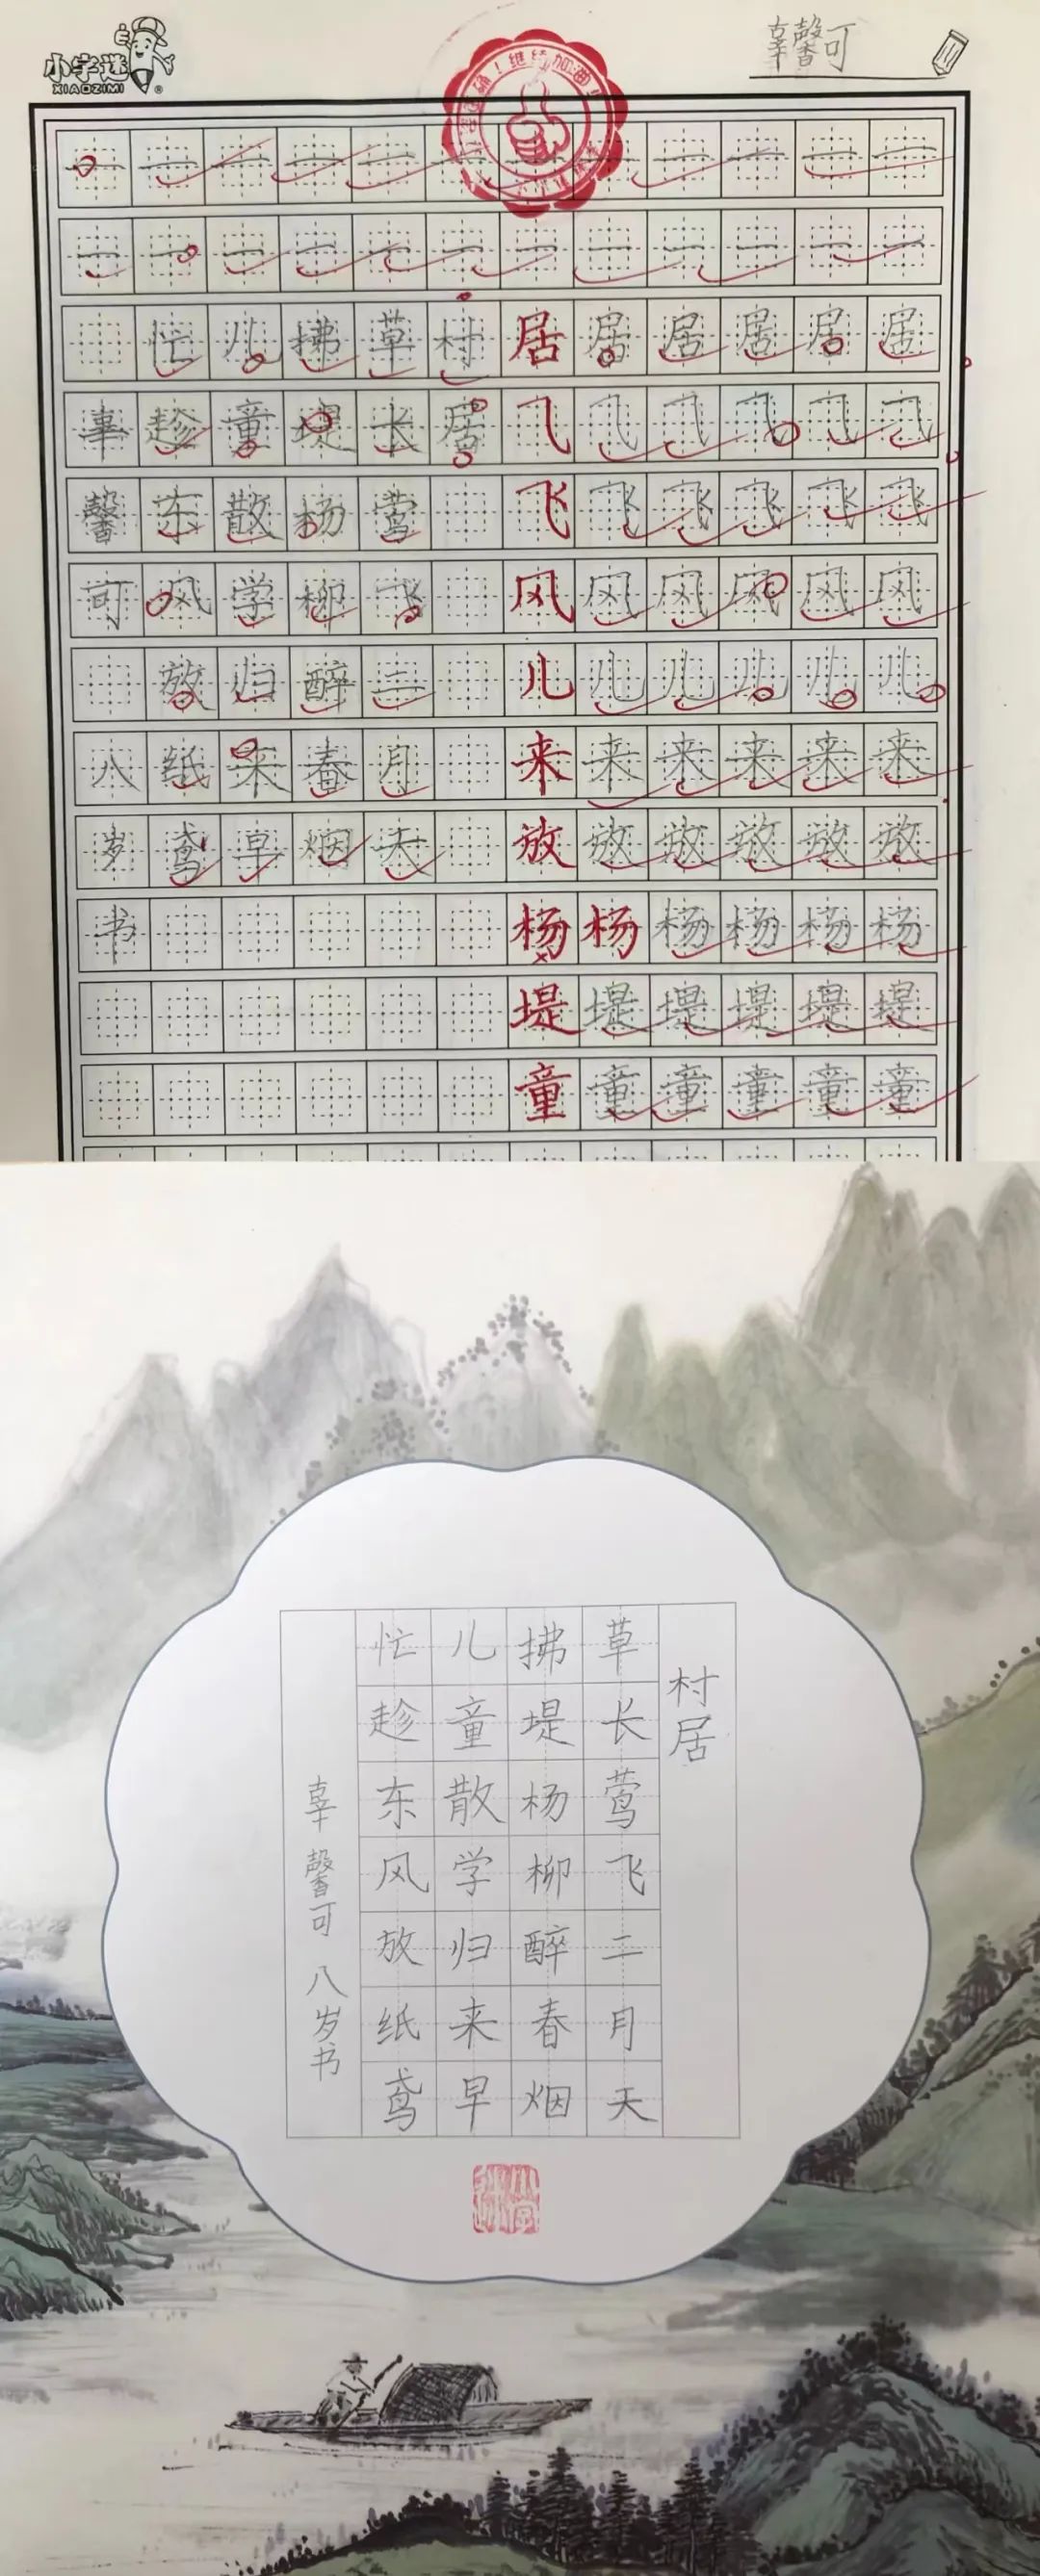 小字迷
XIAOZIMI
辜馨可
继续加油！
一一一一一一一一一一一一
一一一一一一一一一一一一
村居
草长莺飞二月天
拂堤杨柳醉春烟
儿童散学归来早
忙趁东风放纸鸢
辜馨可八岁书
居居居居居居
⺄⺄⺄⺄⺄⺄
飞飞飞飞飞飞
风风风风风风
儿儿儿儿儿儿
来来来来来来
放放放放放放
杨杨杨杨杨杨
堤堤堤堤堤堤
童童童童童童
村居
草长莺飞二月天
拂堤杨柳醉春烟
儿童散学归来早
忙趁东风放纸鸢
辜馨可 八岁书